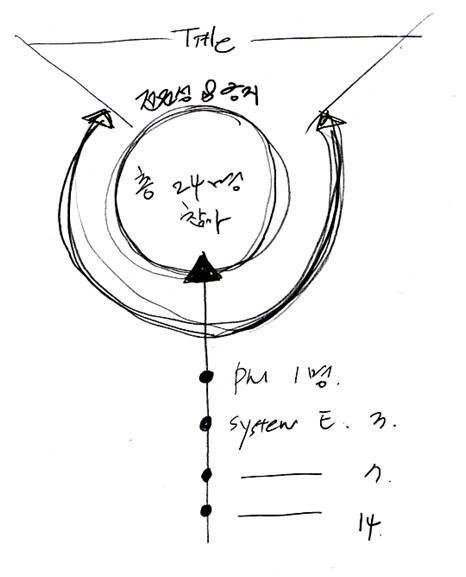 Title
전원성 및 응지
총 24명
참가
PM 1명.
system E. 3.
7.
14.